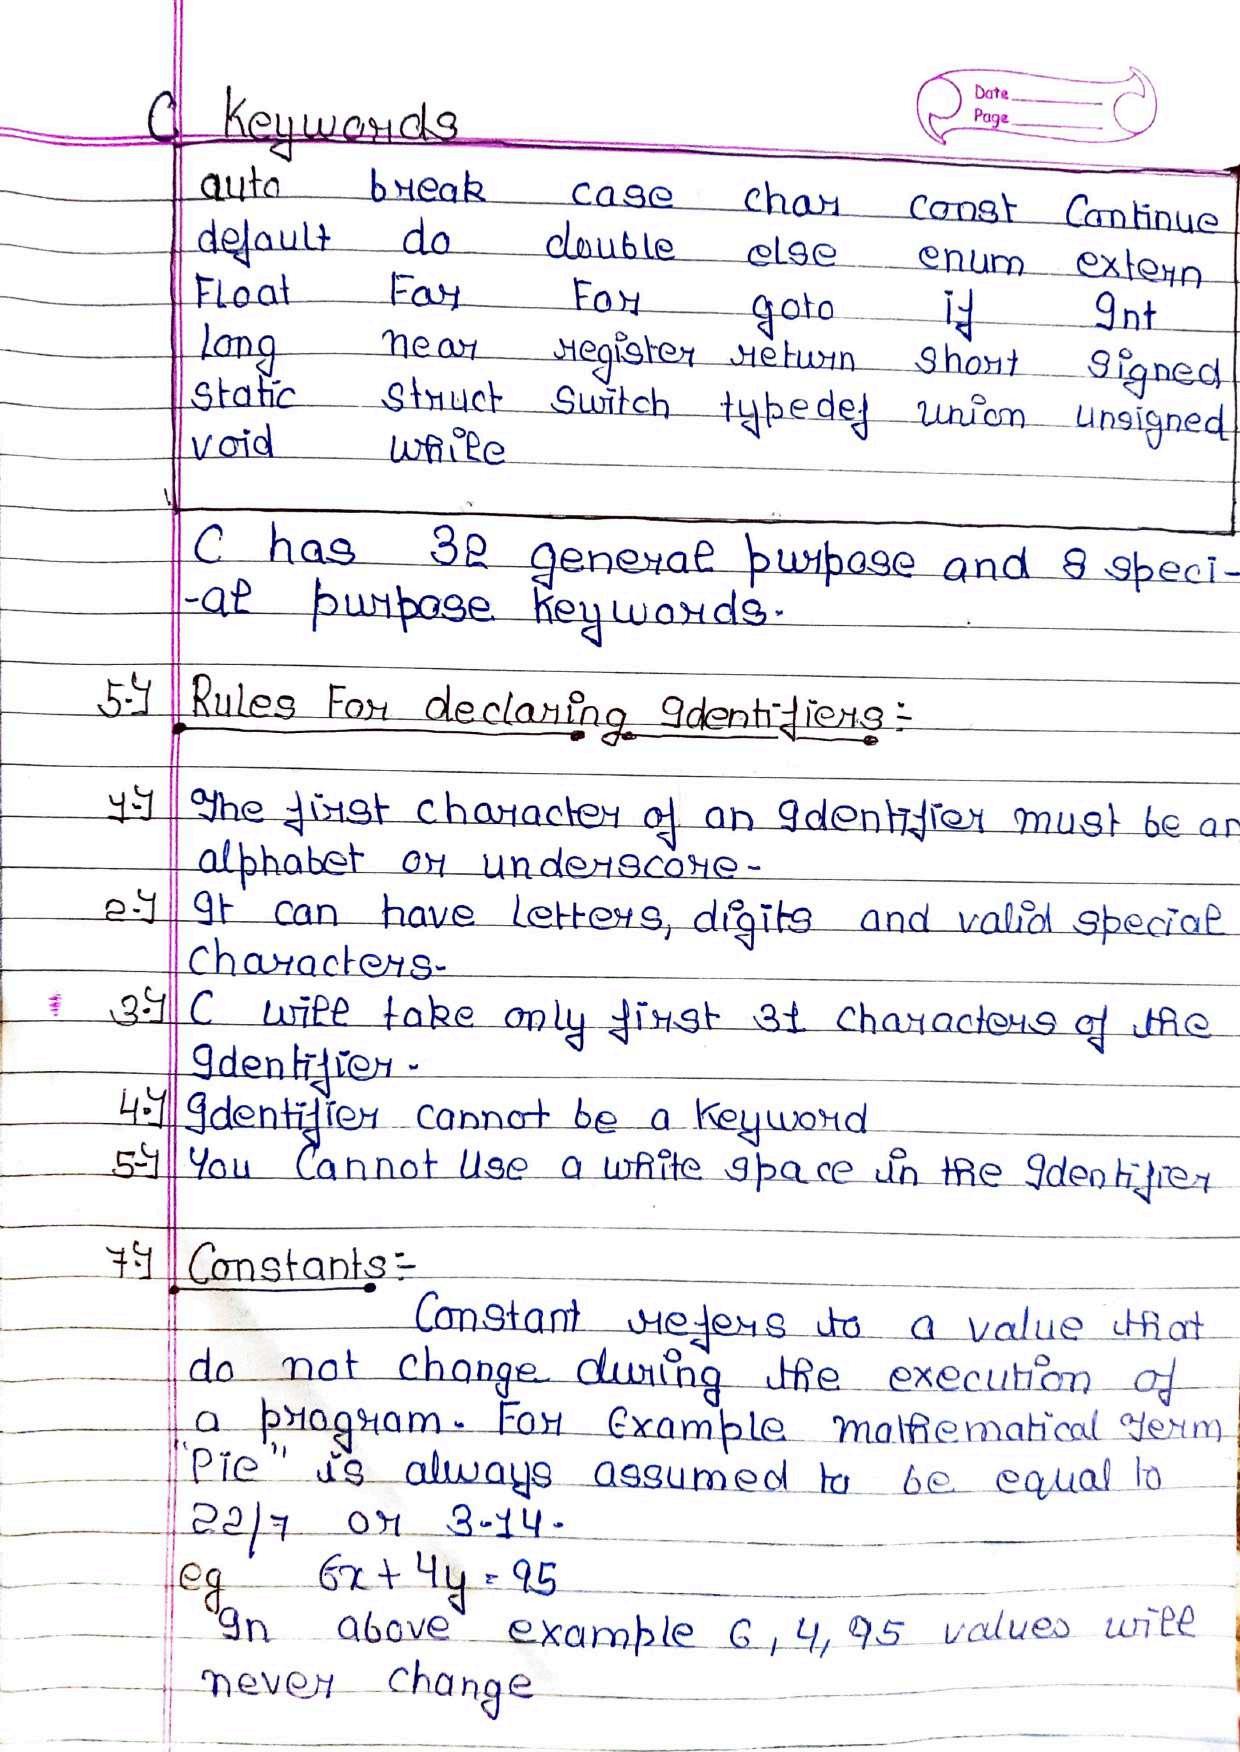 Date
Page
C Keywords
auto break case char const Continue
default do double else enum extern
Float Far For goto if Int
Long near register return short signed
static struct switch typedef union unsigned
void while
C has 32 general purpose and 8 speci-
-al purpose keywords.
5.) Rules For declaring Identifiers:-
1.) The first character of an Identifier must be an
alphabet or underscore.
2.) It can have letters, digits and valid special
characters.
3.) C will take only first 31 characters of the
Identifier.
4.) Identifier cannot be a keyword
5.) You Cannot use a white space in the Identifier
7.) Constants:-
Constant refers to a value that
do not change during the execution of
a program. For Example mathematical Term
"Pie" is always assumed to be equal to
22/7 or 3.14.
eg 6x + 4y = 95
In above example 6, 4, 95 values will
never change